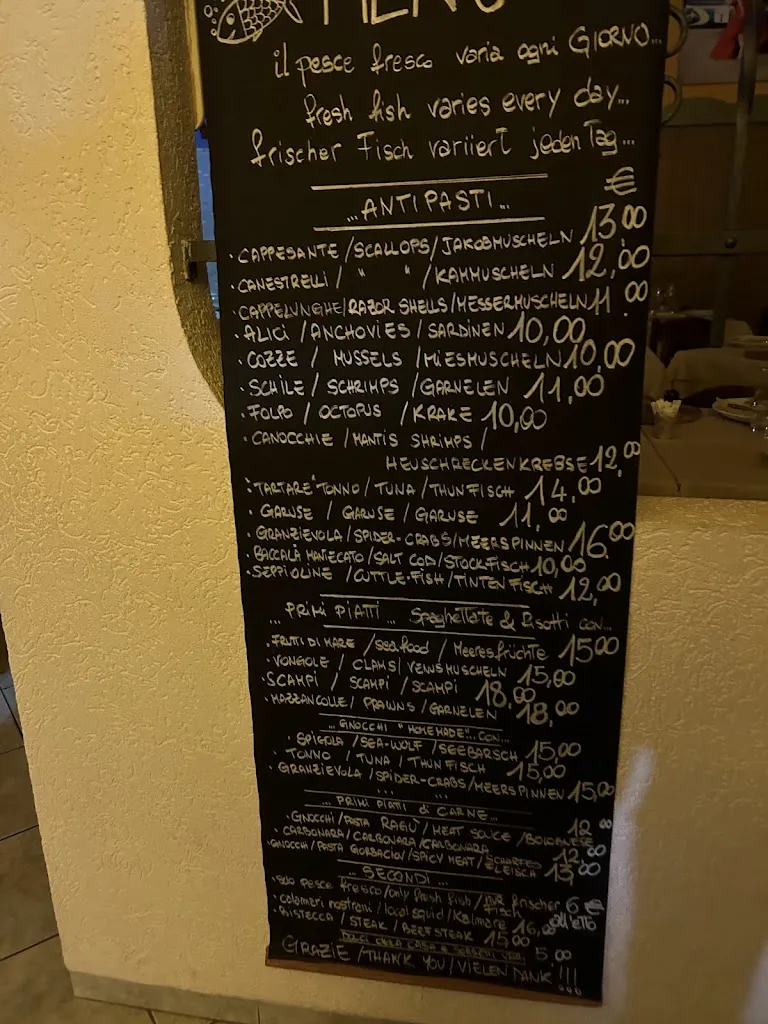 MENU
il pesce fresco varia ogni GIORNO...
fresh fish varies every day...
frischer Fisch variiert jeden Tag...
€
...ANTIPASTI...
·CAPPESANTE/SCALLOPS/JAKOBMUSCHELN 13,00
·CANESTRELLI / " " /KAMMUSCHELN 12,00
·CAPPELUNGHE/RAZOR SHELLS/MESSERMUSCHELN 11,00
·ALICI /ANCHOVIES/SARDINEN 10,00
·COZZE / MUSSELS /MIESMUSCHELN 10,00
·SCHILE/ SCHRIMPS /GARNELEN 11,00
·FOLPO / OCTOPUS /KRAKE 10,00
·CANOCCHIE /MANTIS SHRIMPS /
HEUSCHRECKENKREBSE 12,00
·"TARTARE" TONNO/TUNA/THUNFISCH 14,00
·GARUSE / GARUSE / GARUSE 11,00
·GRANZIEVOLA/SPIDER-CRABS/MEERSPINNEN 16,00
·BACCALÀ MANTECATO/SALT COD/STOCKFISCH 10,00
·SEPPIOLINE /CUTTLE-FISH/TINTENFISCH 12,00
...PRIMI PIATTI... Spaghettate & Risotti con...
·FRUTTI DI MARE /seafood / Meeresfrüchte 15,00
·VONGOLE / CLAMS/ VENUSMUSCHELN 15,00
·SCAMPI / SCAMPI / SCAMPI 18,00
·MAZZANCOLLE/ PRAWNS/GARNELEN 18,00
...GNOCCHI "HOMEMADE"...CON...
·SPIGOLA /SEA-WOLF /SEEBARSCH 15,00
·TONNO / TUNA / THUNFISCH 15,00
·GRANZIEVOLA /SPIDER-CRABS/MEERSPINNEN 15,00
...PRIMI PIATTI di CARNE...
·GNOCCHI/PASTA RAGÙ/ MEAT SAUCE /BOLOGNESE 12,00
·CARBONARA/CARBONARA/CARBONARA 12,00
·GNOCCHI/PASTA /SPICY MEAT/SCHARFES FLEISCH 13,00
...SECONDI...
·solo pesce fresco/only fresh fish/nur frischer Fisch 6 € all'etto
·calamari nostrani/local squid/Kalmare 16,00
·BISTECCA / STEAK / BEEFSTEAK 15,00
DOLCI DELLA CASA 5,00
GRAZIE /THANK YOU/VIELEN DANK!!!